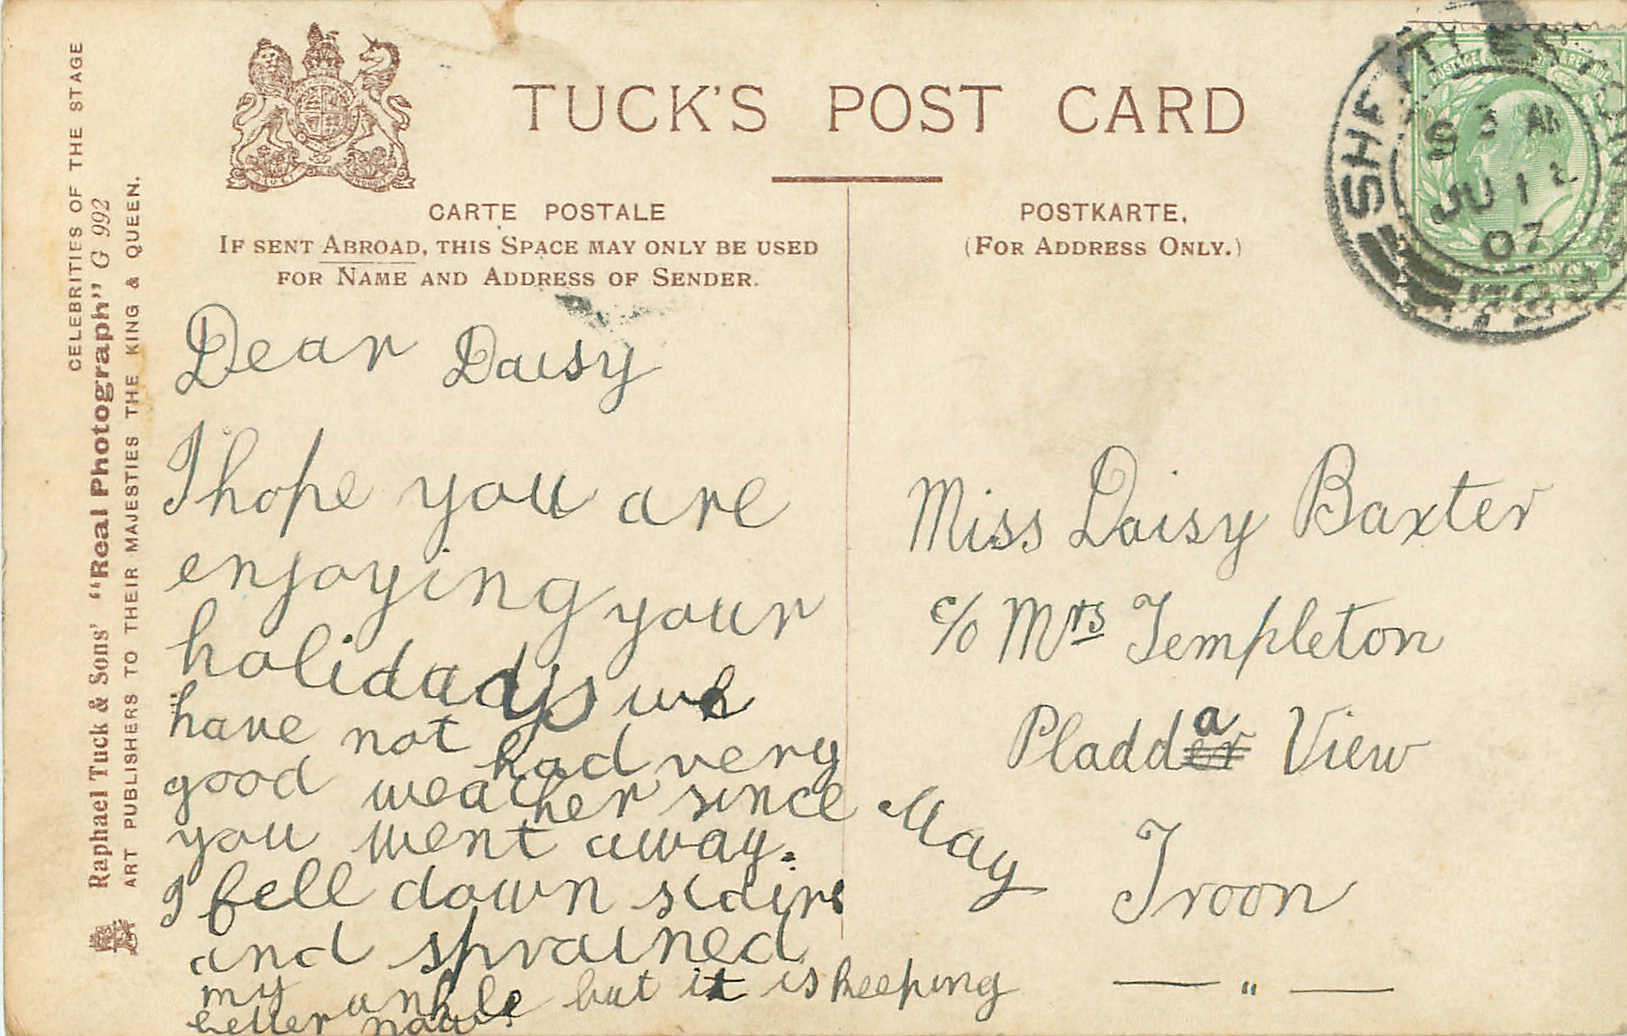 CELEBRITIES OF THE STAGE
Raphael Tuck & Sons' "Real Photograph" G 992
ART PUBLISHERS TO THEIR MAJESTIES THE KING & QUEEN.
TUCK'S POST CARD
CARTE POSTALE
IF SENT ABROAD, THIS SPACE MAY ONLY BE USED
FOR NAME AND ADDRESS OF SENDER.
POSTKARTE.
(FOR ADDRESS ONLY.)
JU 12
07
Dear Daisy
I hope you are
enjoying your
holidadys we
have not had very
good weather since
you went away.
I fell down stairs
and sprained
my ankle but it is keeping
better now.
May
Miss Daisy Baxter
c/o Mrs Templeton
Pladda View
Troon
— " —